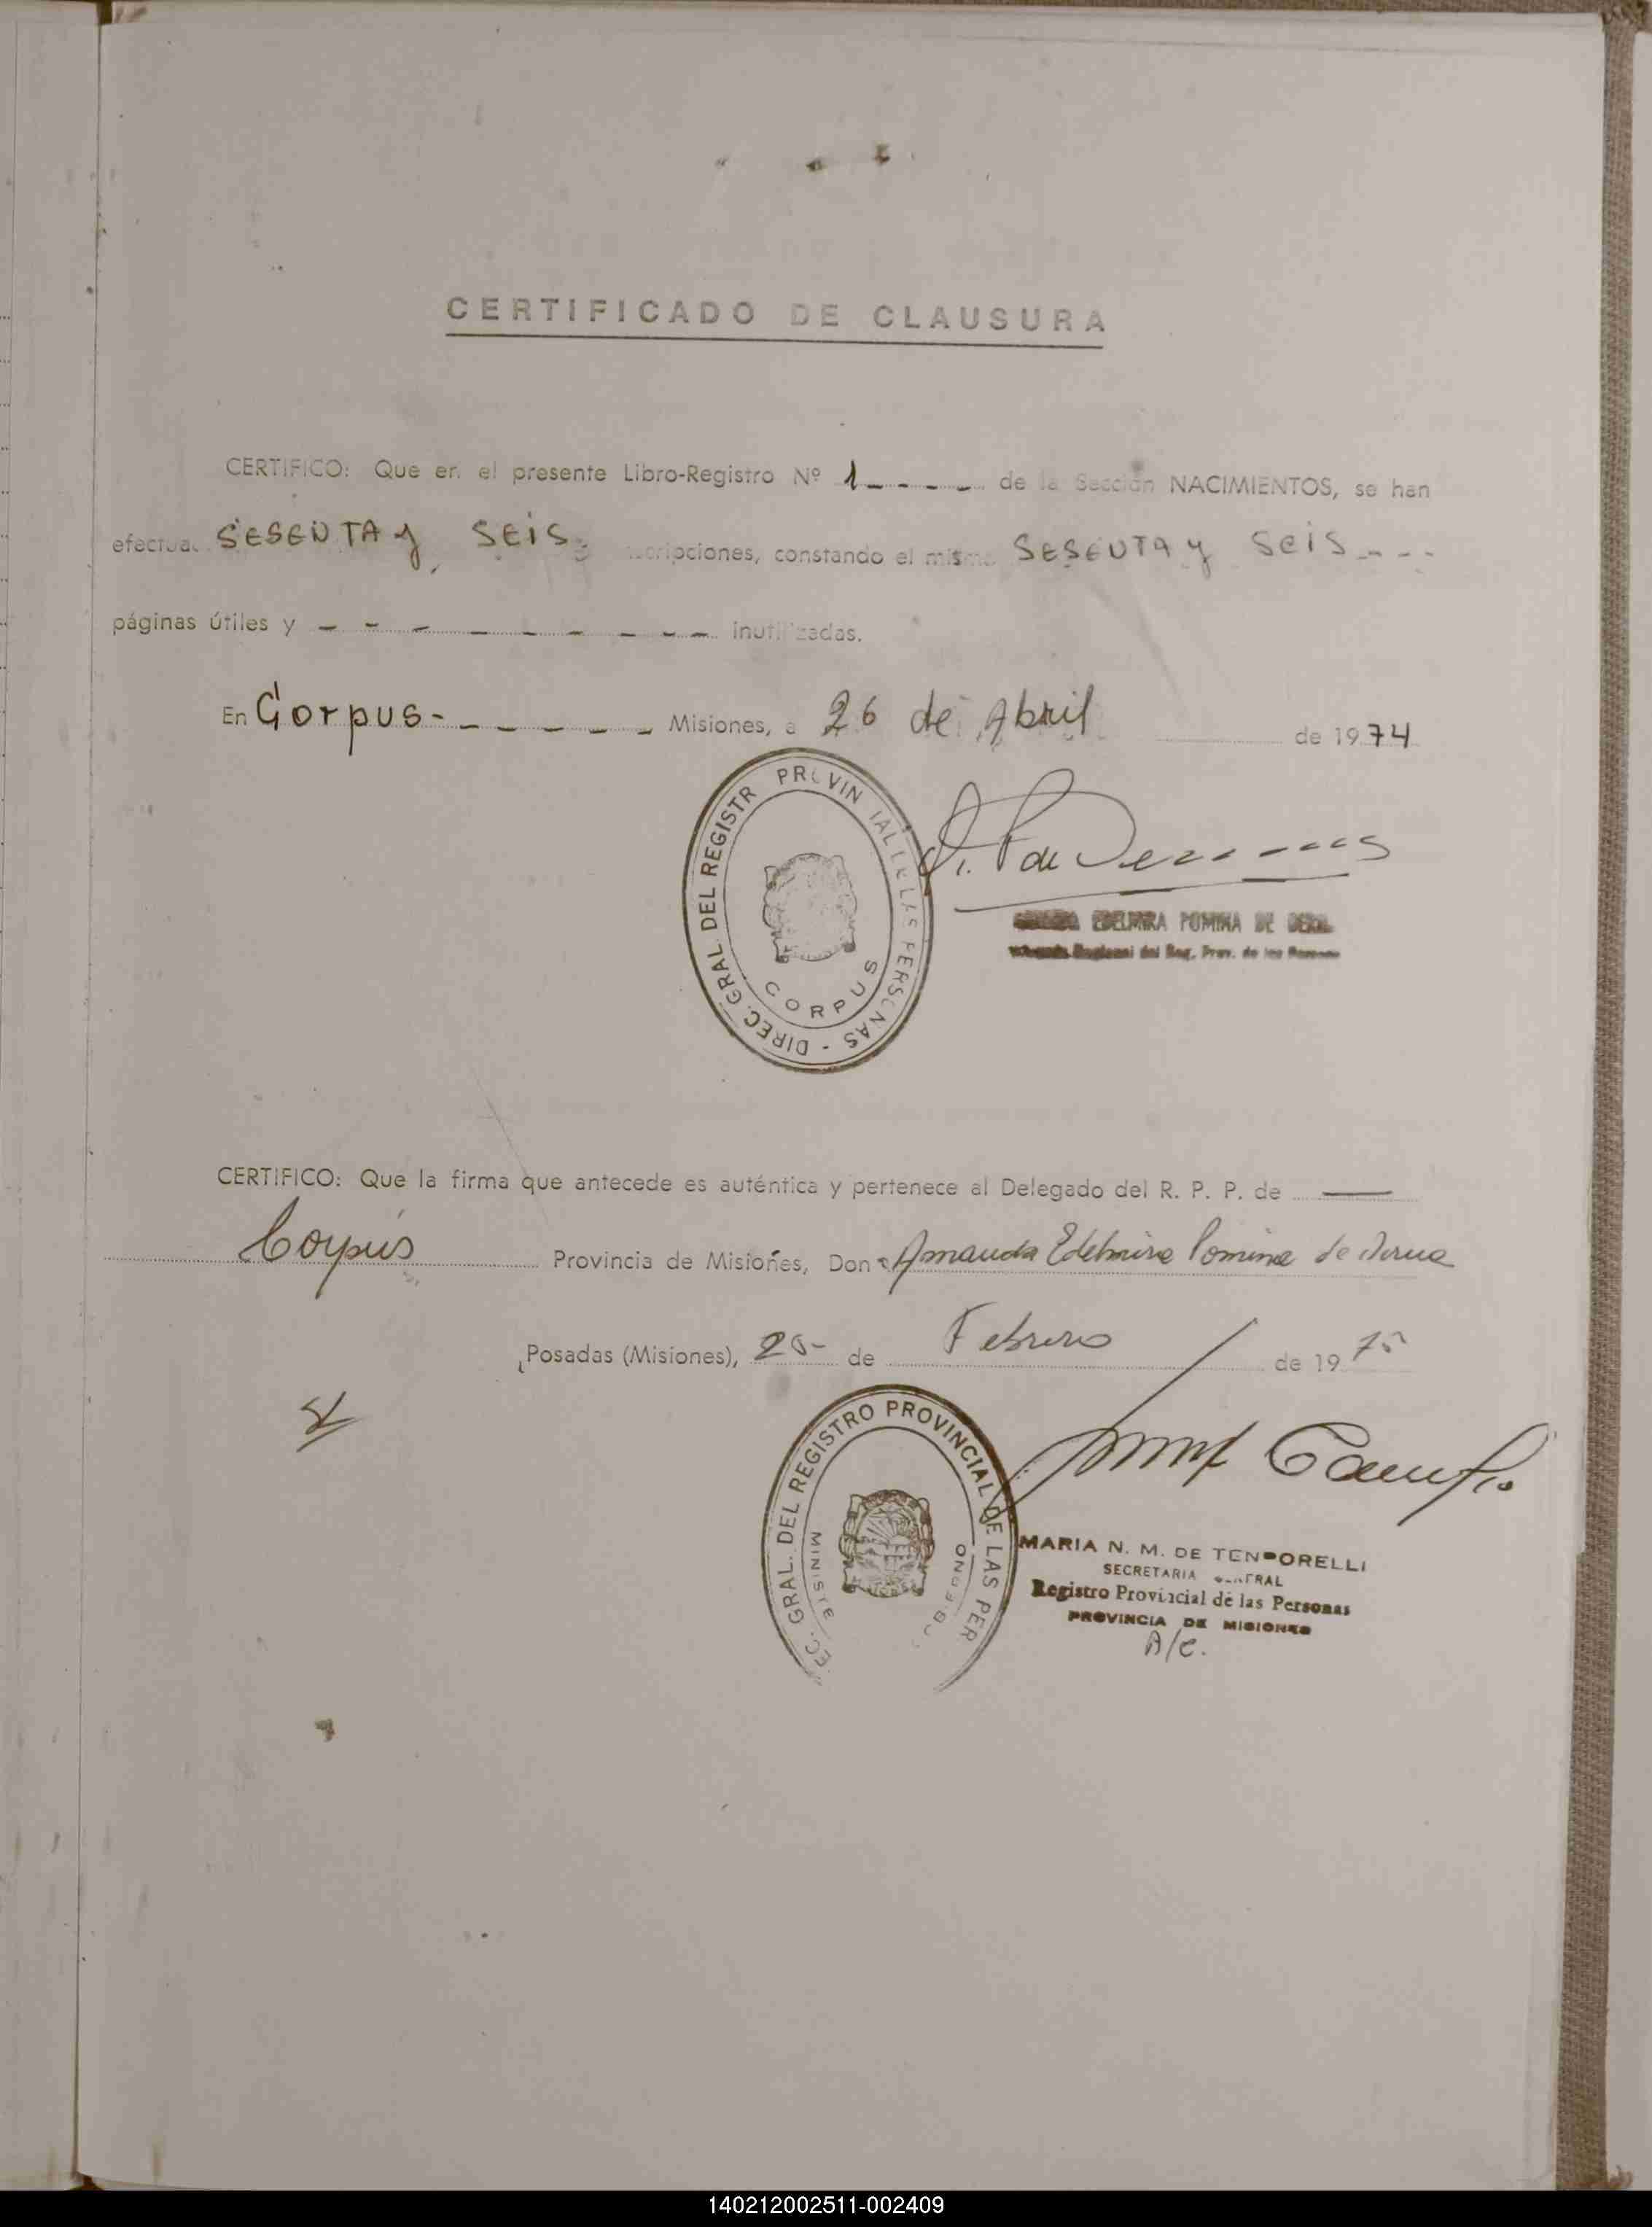 CERTIFICADO DE CLAUSURA
CERTIFICO: Que en el presente Libro-Registro Nº 1 - - - - de la Sección NACIMIENTOS, se han
efectua. SESENTA y SEIS. cripciones, constando el mismo SESENTA y SEIS - - -
páginas útiles y - - - - - - - - - inutilizadas.
En Corpus - - - - - - Misiones, a 26 de Abril de 1974
DIREC. GRAL. DEL REGISTR PROVINCIAL DE LAS PERSONAS -
CORPUS
EDELMIRA POMINA DE
Regional del Reg. Prov. de las
CERTIFICO: Que la firma que antecede es auténtica y pertenece al Delegado del R. P. P. de
Corpus Provincia de Misiones, Don a Amanda Edelmira Pomina de
Posadas (Misiones), de Febrero de 1975
EC. GRAL. DEL REGISTRO PROVINCIAL DE LAS PER
MINISTE
MARIA N. M. DE TENDORELLI
SECRETARIA GENERAL
Registro Provincial de las Personas
PROVINCIA DE MISIONES
A/C.
140212002511-002409